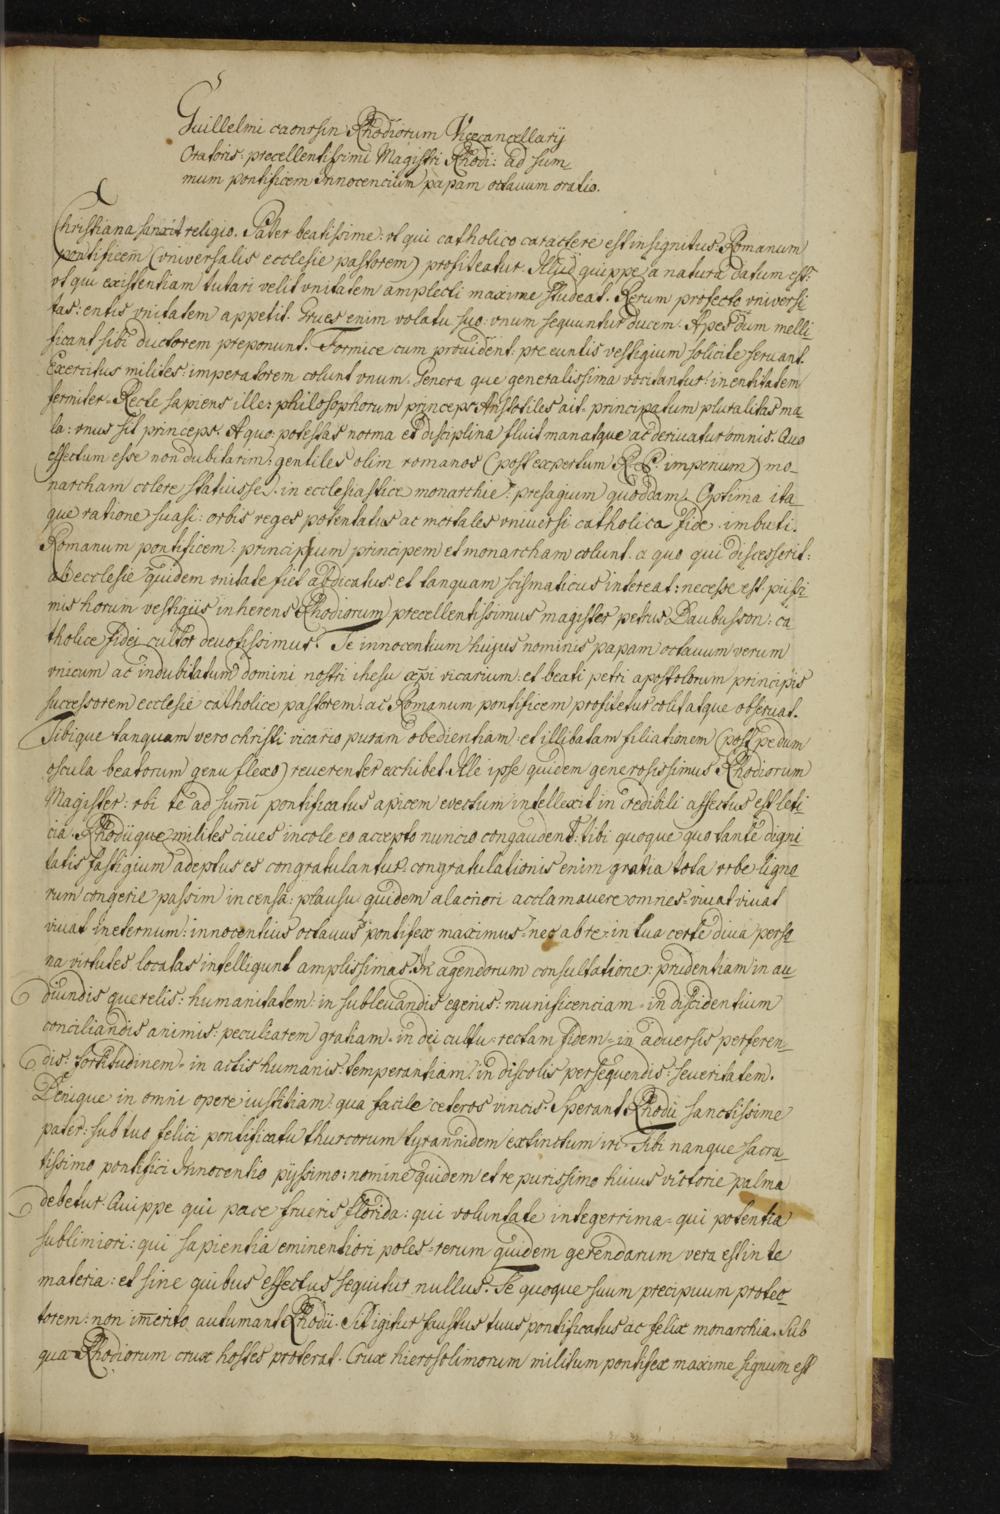 Guillelmi caonrsin Rhodiorum Vicecancellarij
Oratoris: precellentissimi Magistri Rhodi: ad sum
mum pontificem Innocencium papam octauum oratio.
Christiana sanxit religio. Pater beatissime: vt qui catholico caractere est insignitus Romanum
pontificem (vniuersalis ecclesie pastorem) profiteatur. Illud quippe a natura datum est:
vt qui existentiam tutari velit vnitatem amplecti maxime studeat. Rerum profecto vniuersi
tas: entis vnitatem appetit. Grues enim volatu suo: vnum sequuntur ducem. Apes dum melli
ficant sibi ductorem preponunt. Formice cum prouident: preeuntis vestigium solicite seruant.
Exercitus milites: imperatorem colunt vnum. Genera que generalissima vocitantur: in entitatem
Recte sapiens ille: philosophorum princeps Aristotiles ait. principatum pluralitas ma
la: vnus sit princeps. A quo potestas norma et disciplina fluit manatque ac deriuatur omnis. Quo
effectum esse non dubitarim: gentiles olim romanos (post expertum R. P. imperium) mo-
narcham colere statuisse. in ecclesiastice monarchie: presagium quoddam. Optima ita
que ratione suasi: orbis reges potentatus ac mortales vniuersi catholica fide imbuti.
Romanum pontificem: principum principem et monarcham colunt. a quo qui discesserit:
ab ecclesie quidem vnitate fiet abdicatus et tanquam scismaticus intereat: necesse est. piissi
mis horum vestigiis inherens (Rhodiorum) precellentissimus magister petrus Daubusson: ca
tholice fidei cultor deuotissimus. Te innocentium hujus nominis papam octauum verum
vnicum ac indubitatum domini nostri ihesu xpi vicarium: et beati petri apostolorum principis
successorem ecclesie catholice pastorem: ac Romanum pontificem profitetur colit atque obseruat.
Tibique tanquam vero christi vicario puram obedientiam: et illibatam filiationem (post pedum
oscula beatorum genu flexo) reuerenter exhibet. Ille ipse quidem generosissimus Rhodiorum
Magister: vbi te ad sum̄i pontificatus apicem euectum intellexit incredibili affectus est leti
cia. Rhodiique milites ciues incole eo accepto nuncio congaudent: tibi quoque quo tante digni
tatis fastigium adeptus es congratulantur. congratulationis enim gratia tota vrbe ligno
rum congerie passim incensa: plausu quidem alacriori acclamauere omnes. viuat viuat
viuat in eternum: innocentius octauus pontifex maximus. nec ab re: in tua certe diua perso
na virtutes locatas intelligunt amplissimas. In agendorum consultatione: prudentiam in au
diundis querelis: humanitatem: in subleuandis egenis: munificenciam: in discidentium
conciliandis animis: peculiarem gratiam: in dei cultu: rectam fidem: in aduersis perferen-
dis: fortitudinem: in actis humanis: temperantiam: in discolis persequendis: seueritatem.
Denique in omni opere iustitiam: qua facile ceteros vincis. Sperant Rhodii sanctissime
pater: sub tuo felici pontificatu thurcorum tyrannidem extinctum iri. Tibi nanque sacra-
tissimo pontifici Innocentio pijssimo: nomine quidem et re purissimo huius victorie palma
debetur. Quippe qui pace frueris florida: qui voluntate integerrima: qui potentia
sublimiori: qui sapientia eminentiori poles: rerum quidem gerendarum vera est in te
materia: et sine quibus effectus sequitur nullus. Te quoque suum precipuum protec-
torem: non im̄erito autumant Rhodii. Sit igitur faustus tuus pontificatus ac felix monarchia. Sub
qua Rhodiorum crux hostes proterat. Crux hierosolimorum militum pontifex maxime signum est